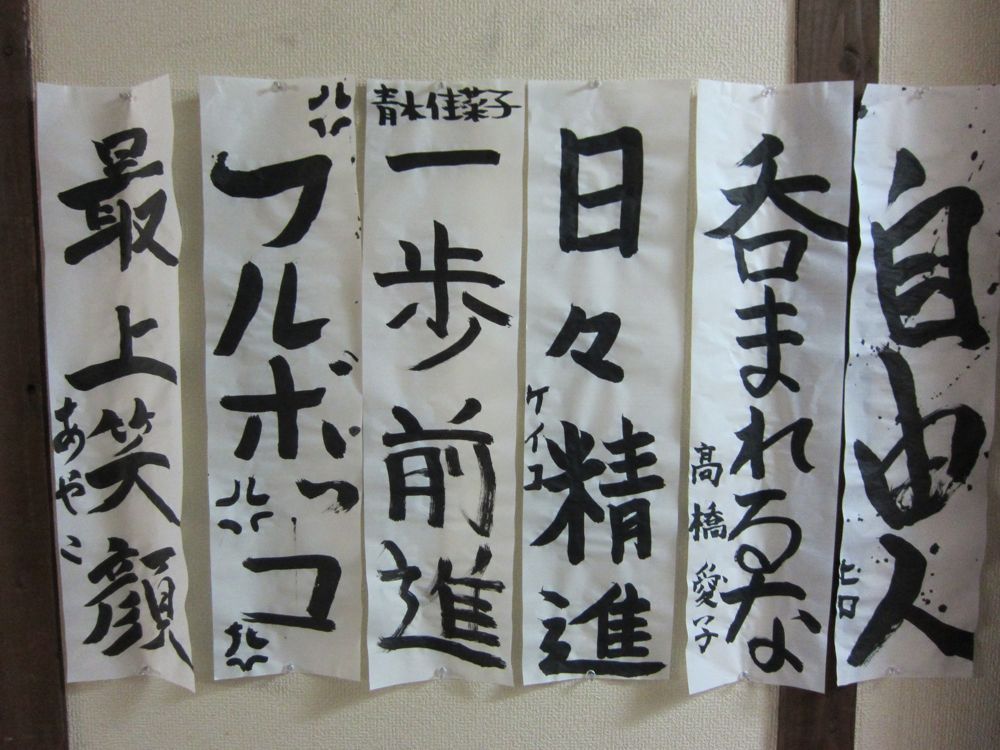 自由人
ヒロ
呑まれるな
高橋愛子
日々精進
ケイコ
青木佳菜子
一歩前進
フルボッコ
最上笑顔
あやこ